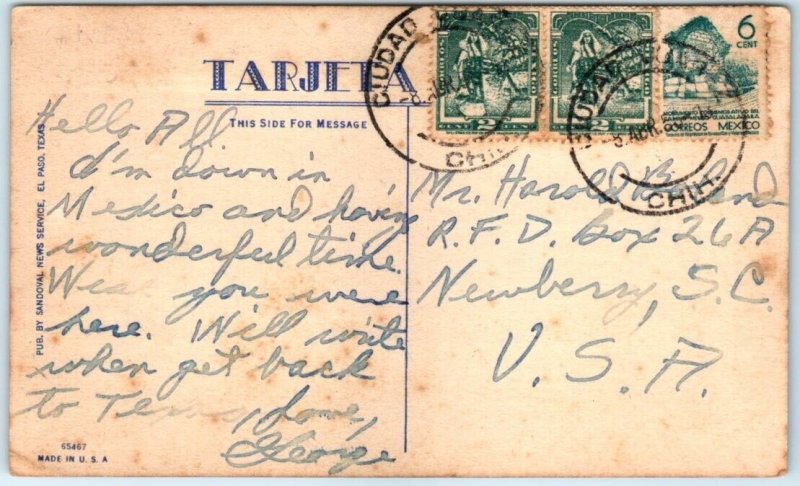 TARJETA
THIS SIDE FOR MESSAGE
Hello All
I'm down in
Mexico and having
wonderful time.
you were
here. Will write
when get back
to Texas, Love,
George
Mr. Harold
R.F.D. Box 26A
Newberry, S.C.
U.S.A.
PUB. BY SANDOVAL NEWS SERVICE, EL PASO, TEXAS
65467
MADE IN U.S.A
CIUDAD
CHIH.
CORREOS
2
CIUDAD
CHIH.
CORREOS
2
6
CENT
CORREOS MEXICO